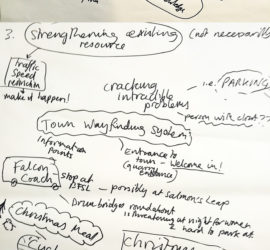 3. Strengthening existing (not necessarily
resource
Traffic
Speed
restriction
make it happen!
cracking i.e. PARKING
intractible
problems
person with clout??
Town Wayfinding System
Information
Points
Entrance to
town - Welcome in!
(Quarry
entrance)
Falcon
Coach
stop at
BFSL - possibly at Salmons Leap
Drumbridges roundabout
threatening at night for women
& hard to park at
Christmas Meal
Christmas